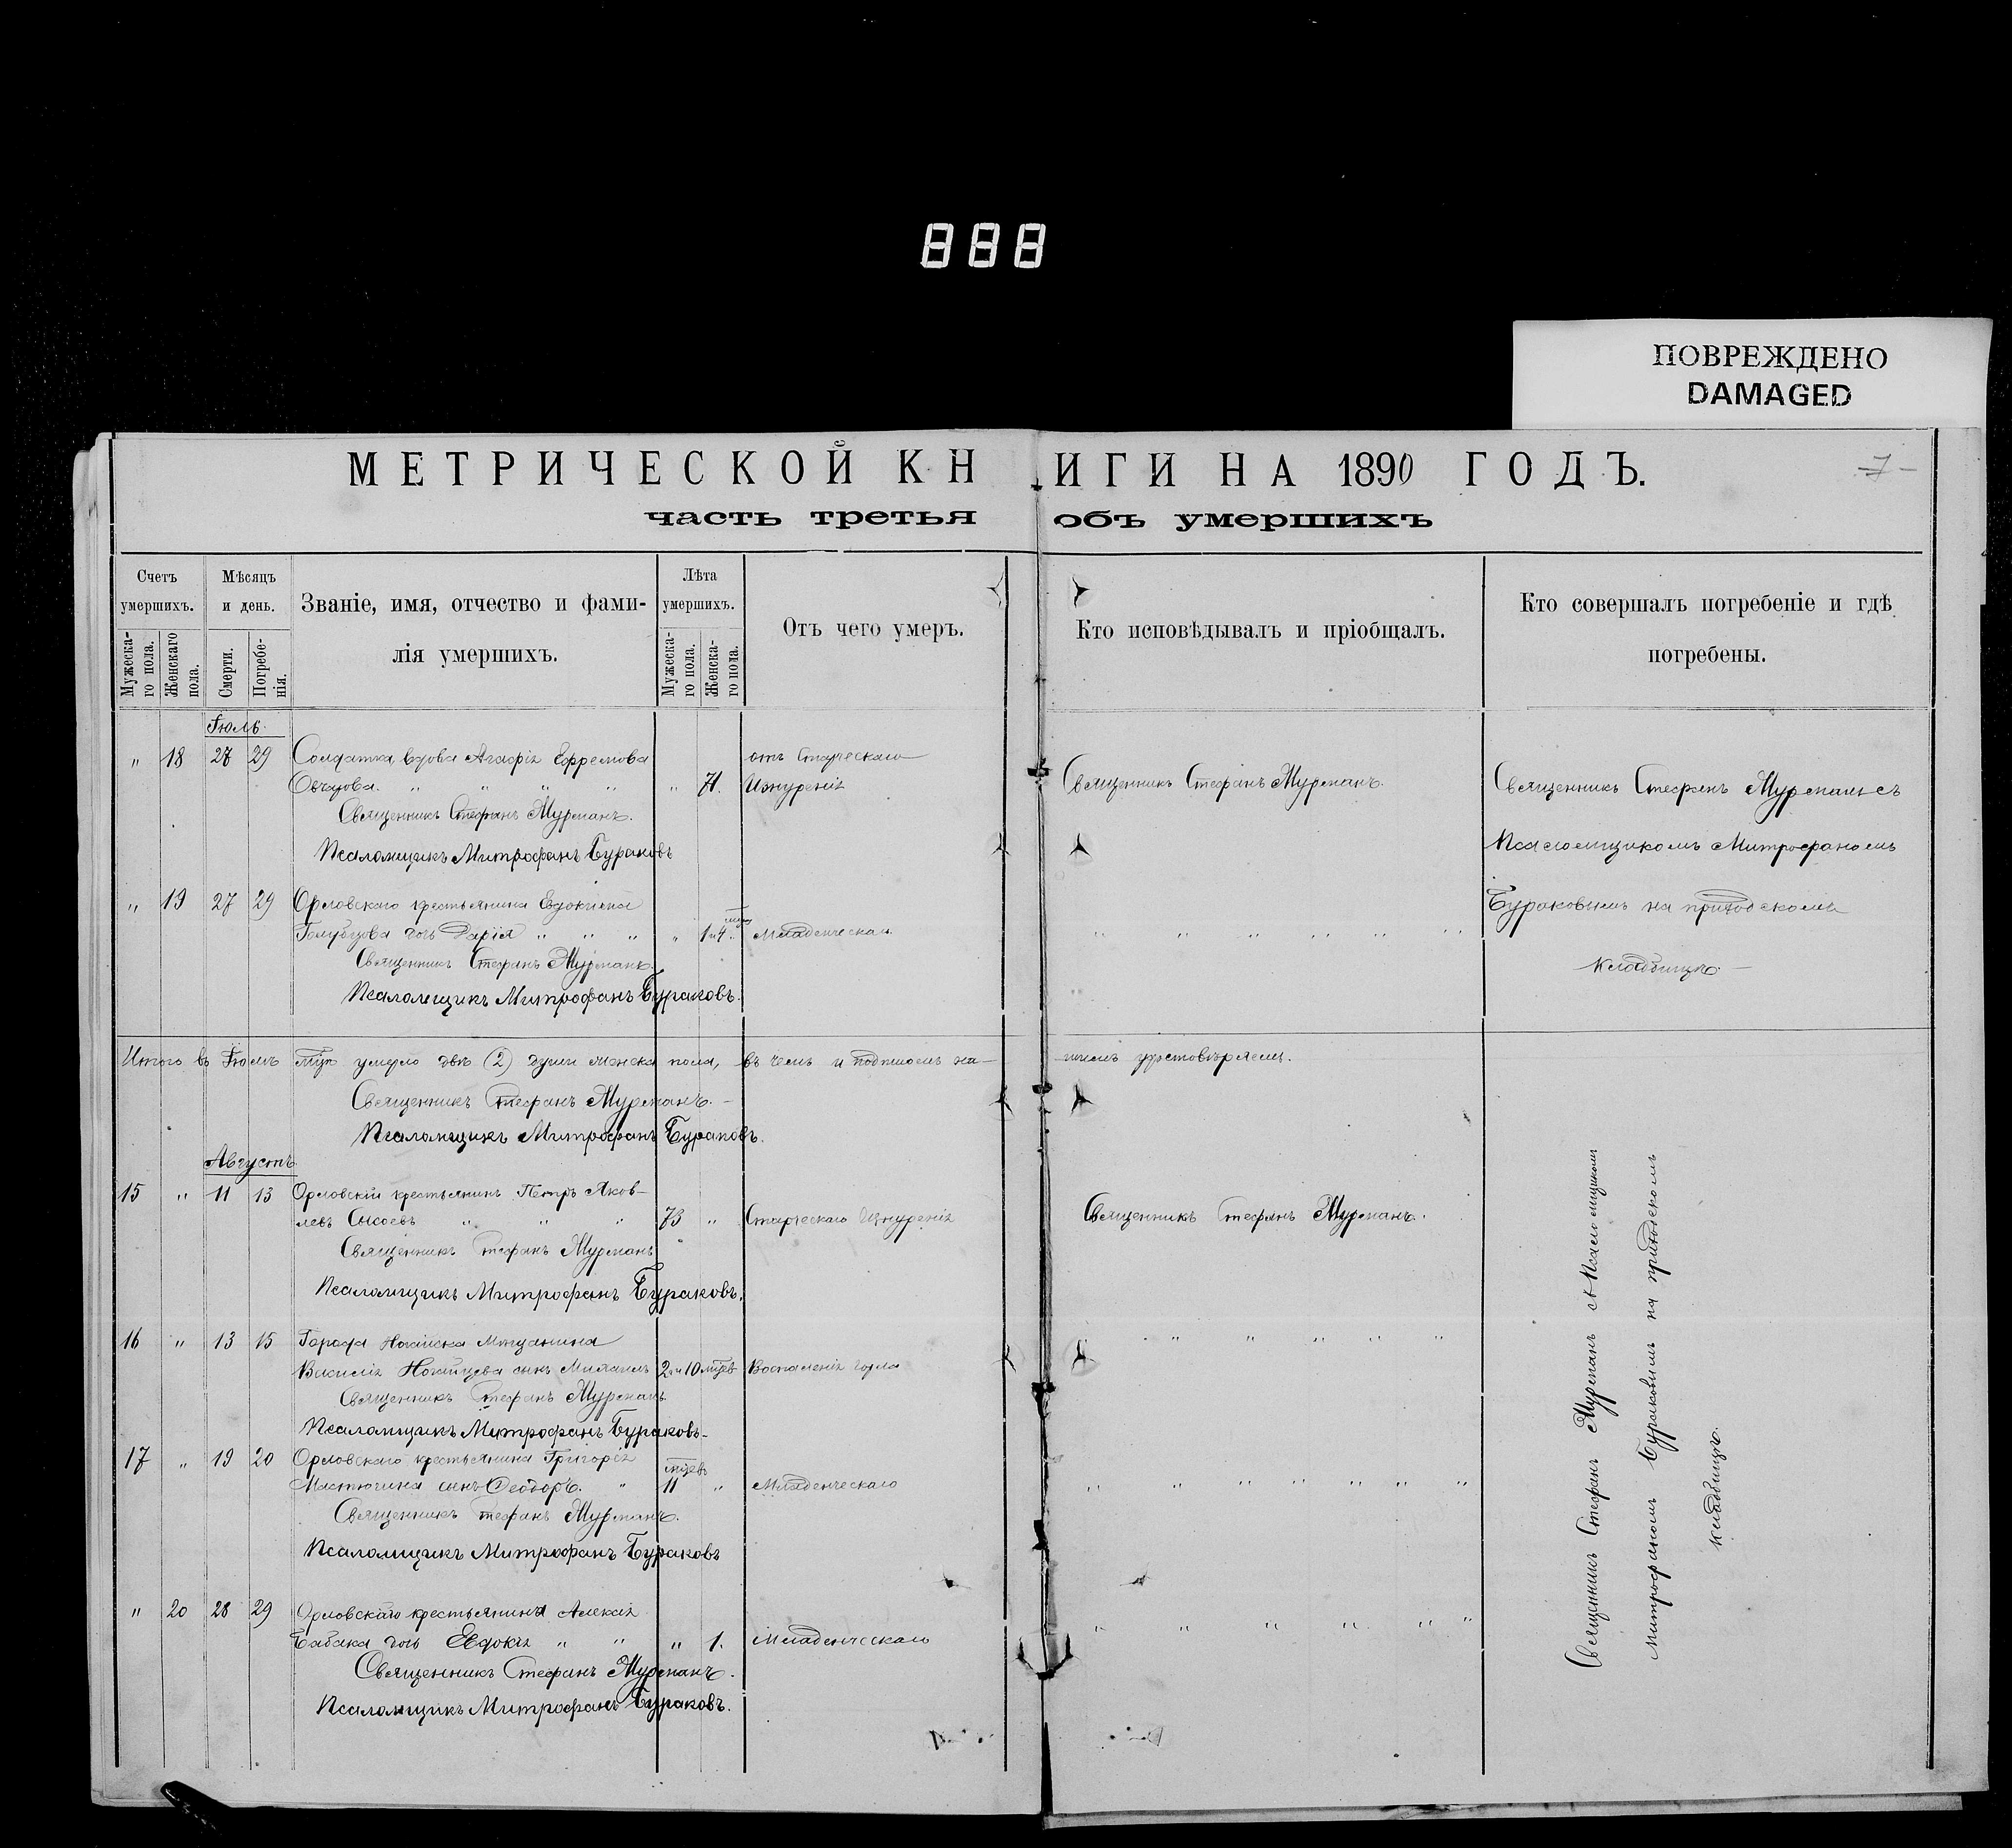 888
ПОВРЕЖДЕНО
DAMAGED
МЕТРИЧЕСКОЙ КНИГИ НА 1890 ГОДЪ.
7
часть третья объ умершихъ
Счетъ умершихъ.
Мужескаго пола.
Женскаго пола.
Мѣсяцъ и день.
Смерти.
Погребенія.
Званіе, имя, отчество и фамилія умершихъ.
Лѣта умершихъ.
Мужескаго пола.
Женскаго пола.
Отъ чего умеръ.
Кто исповѣдывалъ и пріобщалъ.
Кто совершалъ погребеніе и гдѣ погребены.
Іюль
" 18 27 29 Солдатка вдова Агафія Ефремова отъ Старческаго
Овчарова. " " " " " 71. Изнуренія Священникъ Стефанъ Мурманъ. Священникъ Стефанъ Мурманъ съ
Священникъ Стефанъ Мурманъ.
Псаломщикъ Митрофанъ Бураковъ Псаломщикомъ Митрофаномъ
" 19 27 29 Орловскаго крестьянина Евдокима Бураковымъ на приходскомъ
Голубцова дочь Дарія " " " " 1 и 4 Младенческаго " " " " " " "
Священникъ Стефанъ Мурманъ. кладбищѣ.
Псаломщикъ Митрофанъ Бураковъ.
Итого въ Іюлѣ умерло двѣ (2) души женска пола, въ чемъ и подписомъ нашимъ удостовѣряемъ.
Священникъ Стефанъ Мурманъ.
Псаломщикъ Митрофанъ Бураковъ.
Августъ
15 " 11 13 Орловскій крестьянинъ Петръ Яков-
левъ Сысоевъ " " " 73 " Старческаго Изнуренія Священникъ Стефанъ Мурманъ.
Священникъ Стефанъ Мурманъ
Псаломщикъ Митрофанъ Бураковъ.
16 " 13 15 Города Ногайска Мѣщанина " " " " " "
Василія Ногайцева сынъ Михаилъ 2 и 10 мцев Воспаленія горла
Священникъ Стефанъ Мурманъ
Псаломщикъ Митрофанъ Бураковъ
17 " 19 20 Орловскаго крестьянина Григорія мцев
Мастюгина сынъ Ѳеодоръ. " 11 " Младенческаго " " " " " " "
Священникъ Стефанъ Мурманъ.
Псаломщикъ Митрофанъ Бураковъ
" 20 28 29 Орловскаго крестьянина Алексія
Бабака дочь Евдокія " " " 1. Младенческаго " " " " " "
Священникъ Стефанъ Мурманъ.
Псаломщикъ Митрофанъ Бураковъ.
Священникъ Стефанъ Мурманъ съ Псаломщикомъ
Митрофаномъ Бураковымъ на приходскомъ
кладбищѣ.